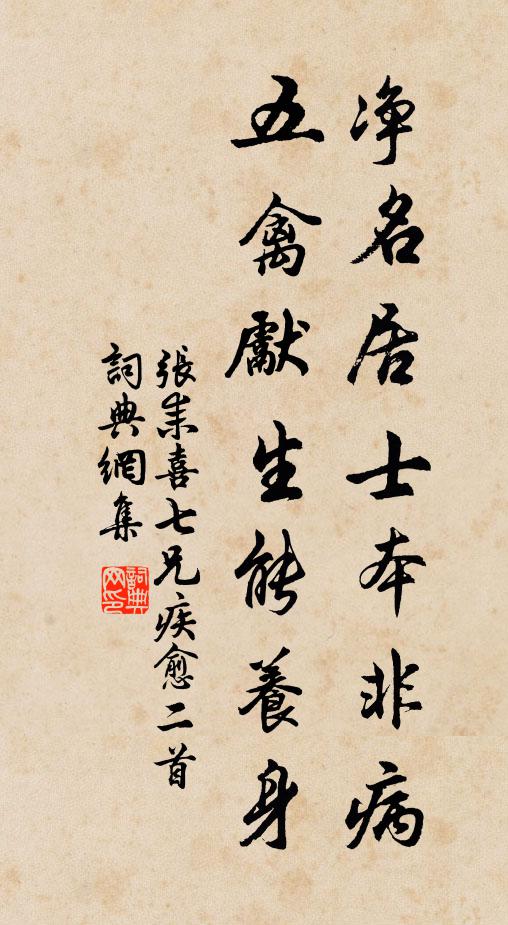 净名居士本非病
五禽獻生能養身
張耒喜七兄疾愈二首
詞典網集
詞典网印